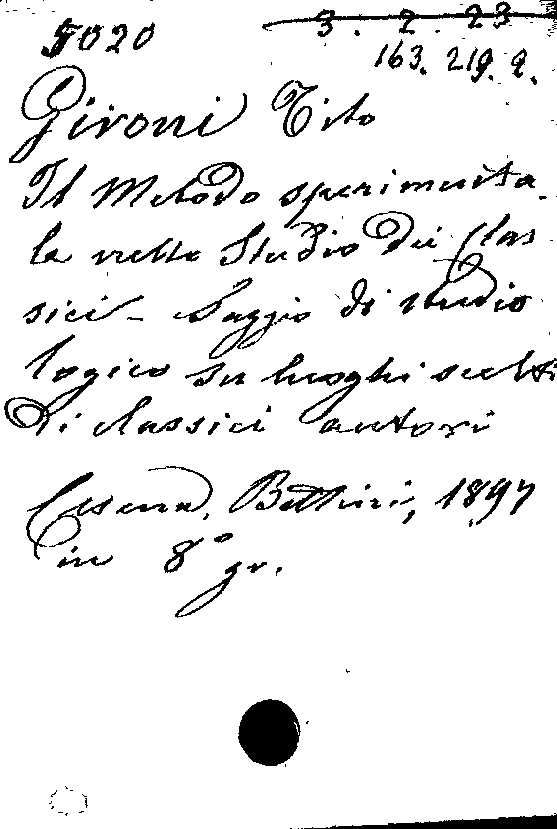 5020
3. 2. 23
163. 219. 2.
Gironi Tito
Il Metodo sperimenta
le nello Studio dei Clas-
sici - Saggio di studio
logico su luoghi scelti
di classici autori
Cesena, Bettini, 1897
in 8° gr.